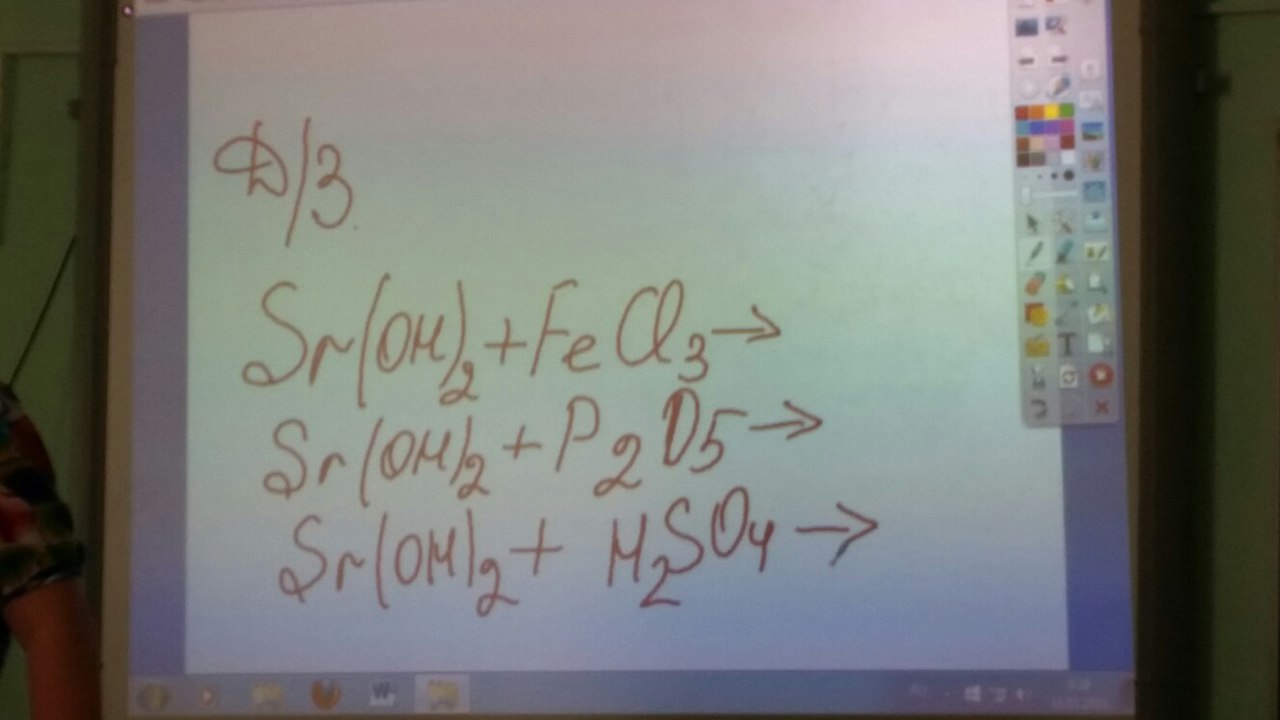 Д/З.
Sr(OH)₂ + FeCl₃ →
Sr(OH)₂ + P₂O₅ →
Sr(OH)₂ + H₂SO₄ →